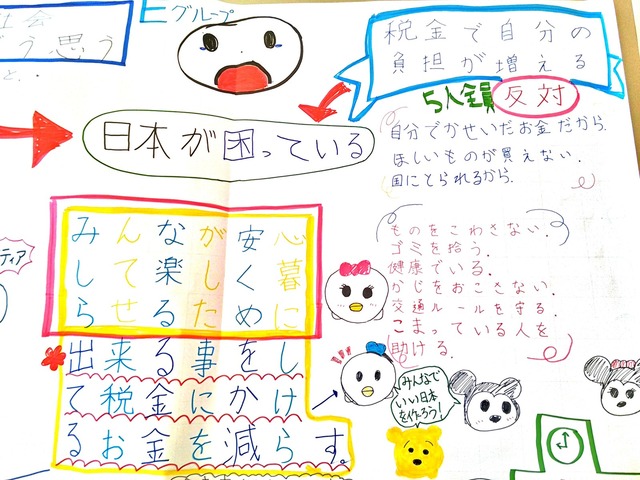 社会
どう思う
Eグループ
税金で自分の
負担が増える
5人全員反対
日本が困っている
自分でかせいだお金だから。
ほしいものが買えない。
国にとられるから。
みんなが安心
して楽しく暮
らせるために
出来る事をし
て税金にかけ
るお金を減らす。
ものをこわさない。
ゴミを拾う。
健康でいる。
かじをおこさない。
交通ルールを守る。
こまっている人を
助ける。
みんなで
いい日本
を作ろう!
ティア